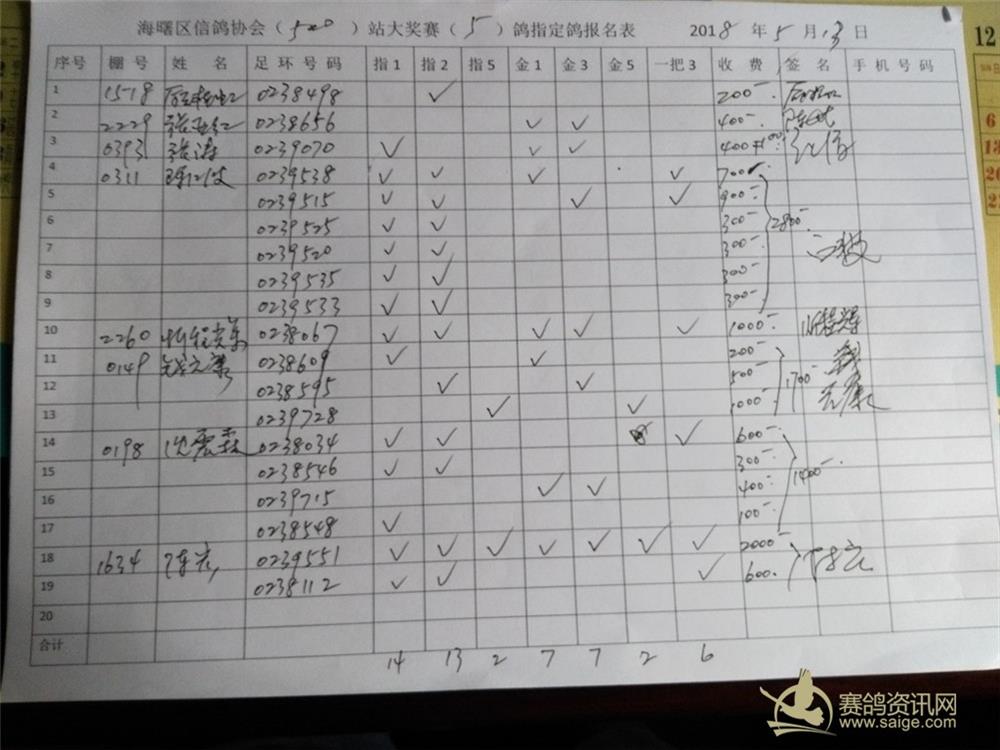 海曙区信鸽协会（500）站大奖赛（5）鸽指定鸽报名表 2018 年 5 月 13 日
序号 棚号 姓 名 足环号码 指1 指2 指5 金1 金3 金5 一把3 收费 签名 手机号码
1 1518 0238498 ✓ 200-
2 2229 0238656 ✓ ✓ 400-
3 0393 张涛 0239070 ✓ ✓ ✓ 400+100-
4 0311 0239538 ✓ ✓ ✓ ✓ 700-
5 0239515 ✓ ✓ ✓ ✓ 900-
6 0239525 ✓ ✓ 300- 2800-
7 0239520 ✓ ✓ 300-
8 0239535 ✓ ✓ 300-
9 0239533 ✓ ✓ 300-
10 2260 0238067 ✓ ✓ ✓ ✓ ✓ 1000-
11 0149 0238609 ✓ ✓ 200-
12 0238595 ✓ ✓ 500- 1700-
13 0239728 ✓ ✓ 1000-
14 0198 沈震霖 0238034 ✓ ✓ ✓ 600-
15 0238546 ✓ ✓ 300- 1400-
16 0239715 ✓ ✓ 400-
17 0238548 ✓ 100-
18 1634 0239551 ✓ ✓ ✓ ✓ ✓ ✓ ✓ 2000-
19 0238112 ✓ ✓ ✓ 600-
20
合计 14 13 2 7 7 2 6
12
6
13
20
赛鸽资讯网
www.saige.com